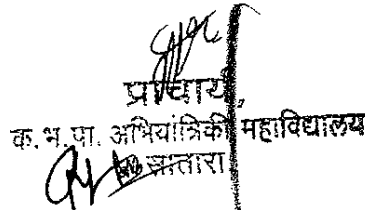 प्राचार्य,
क.भ.पा. अभियांत्रिकी महाविद्यालय
सातारा